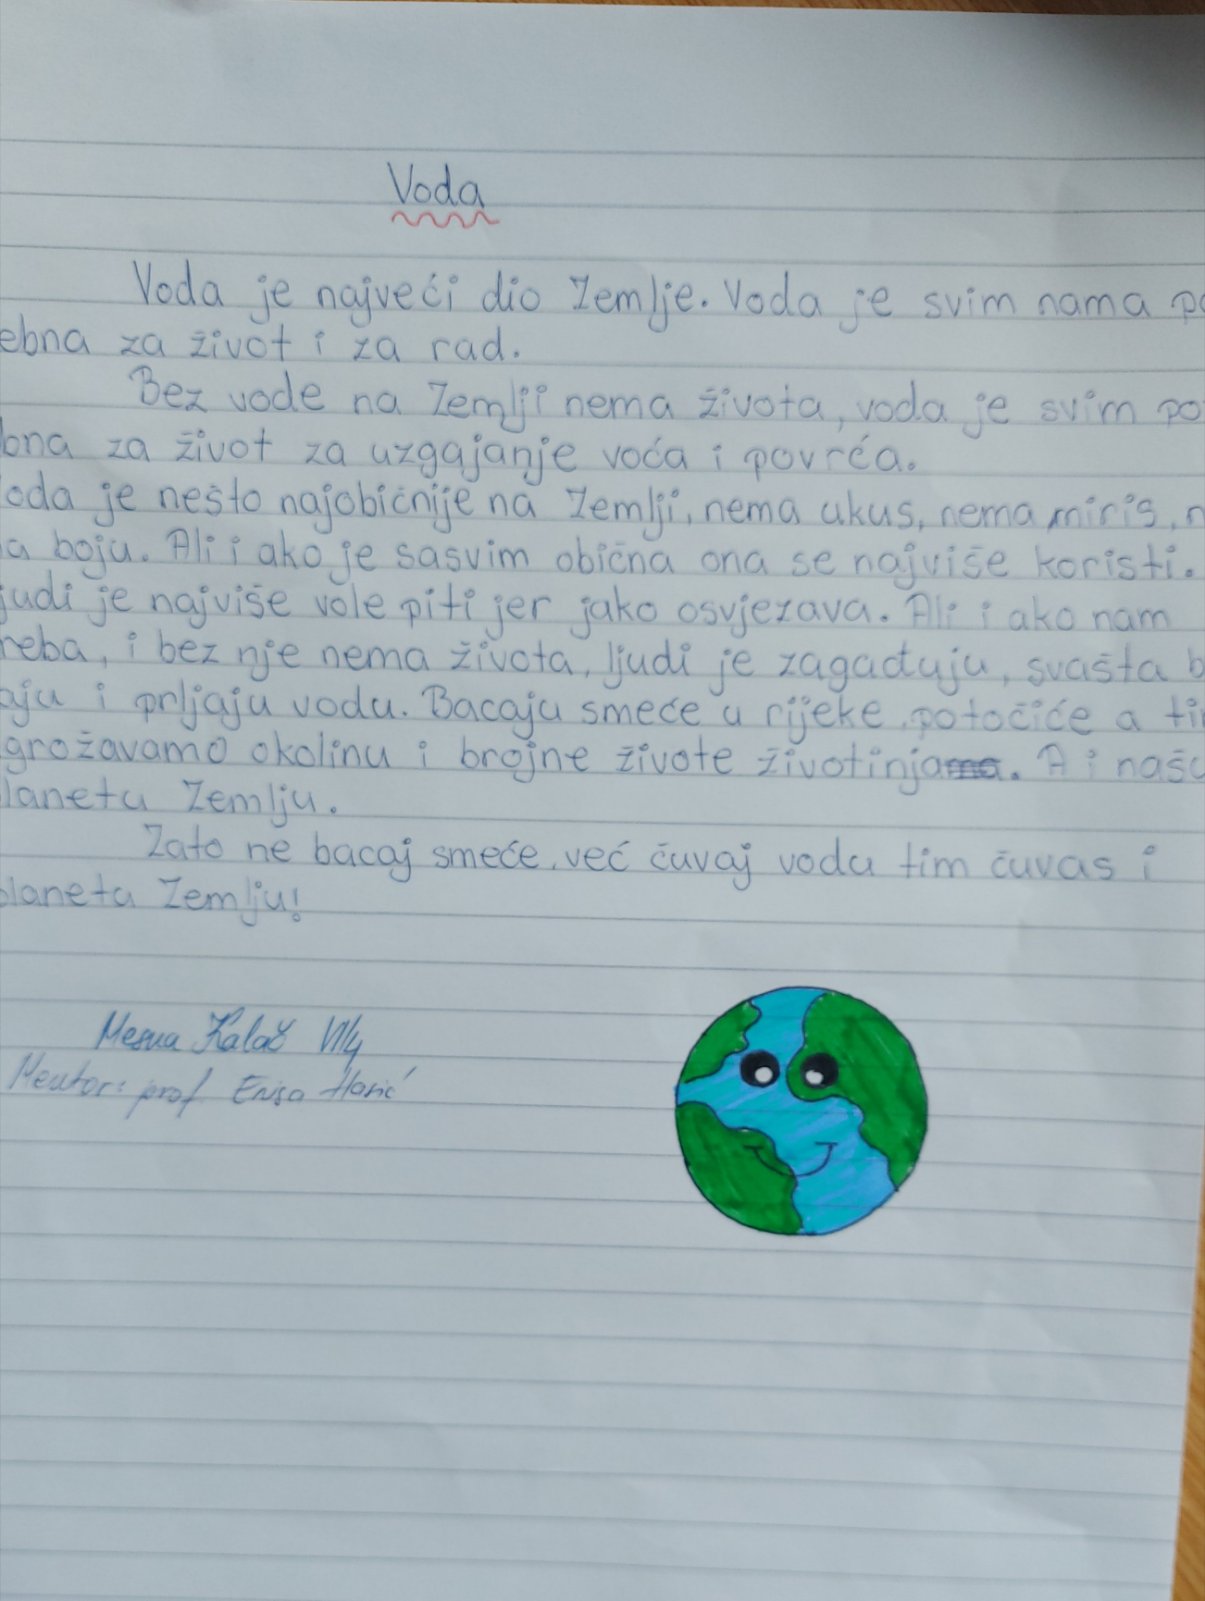 Voda
Voda je najveći dio Zemlje. Voda je svim nama po
ebna za život i za rad.
Bez vode na Zemlji nema života, voda je svim po
bna za život za uzgajanje voća i povrća.
oda je nešto najobičnije na Zemlji, nema ukus, nema miris, n
a boju. Ali i ako je sasvim obična ona se najviše koristi.
judi je najviše vole piti jer jako osvjezava. Ali i ako nam
reba, i bez nje nema života, ljudi je zagađuju, svašta b
aju i prljaju vodu. Bacaju smeće u rijeke, potočiće a tim
grožavamo okolinu i brojne živote životinja. A i našu
lanetu Zemlju.
Zato ne bacaj smeće, već čuvaj vodu tim čuvas i
planetu Zemlju!
Kalač VI4
Mentor: prof